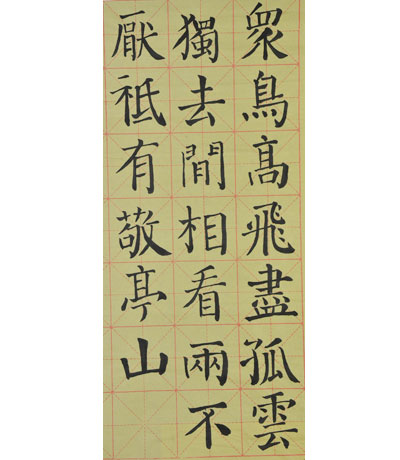 衆鳥高飛盡孤雲
獨去閒相看兩不
厭祗有敬亭山